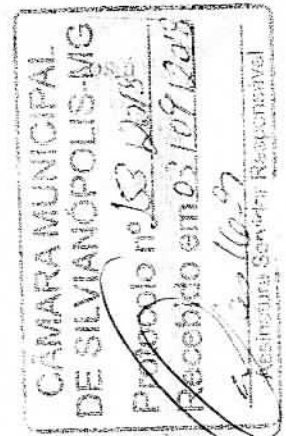 CÂMARA MUNICIPAL
DE SILVIANÓPOLIS-MG
Protocolo nº 153
Recebido em 03/09/2013
Assinatura Servidor Responsável